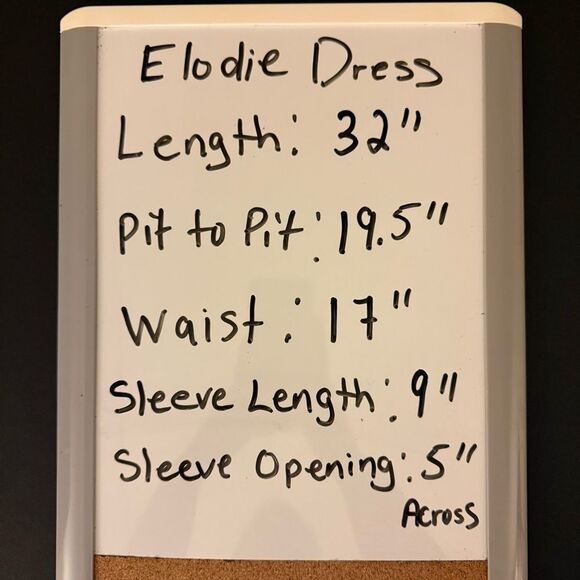 Elodie Dress
Length: 32"
Pit to Pit: 19.5"
Waist: 17"
Sleeve Length: 9"
Sleeve Opening: 5"
Across